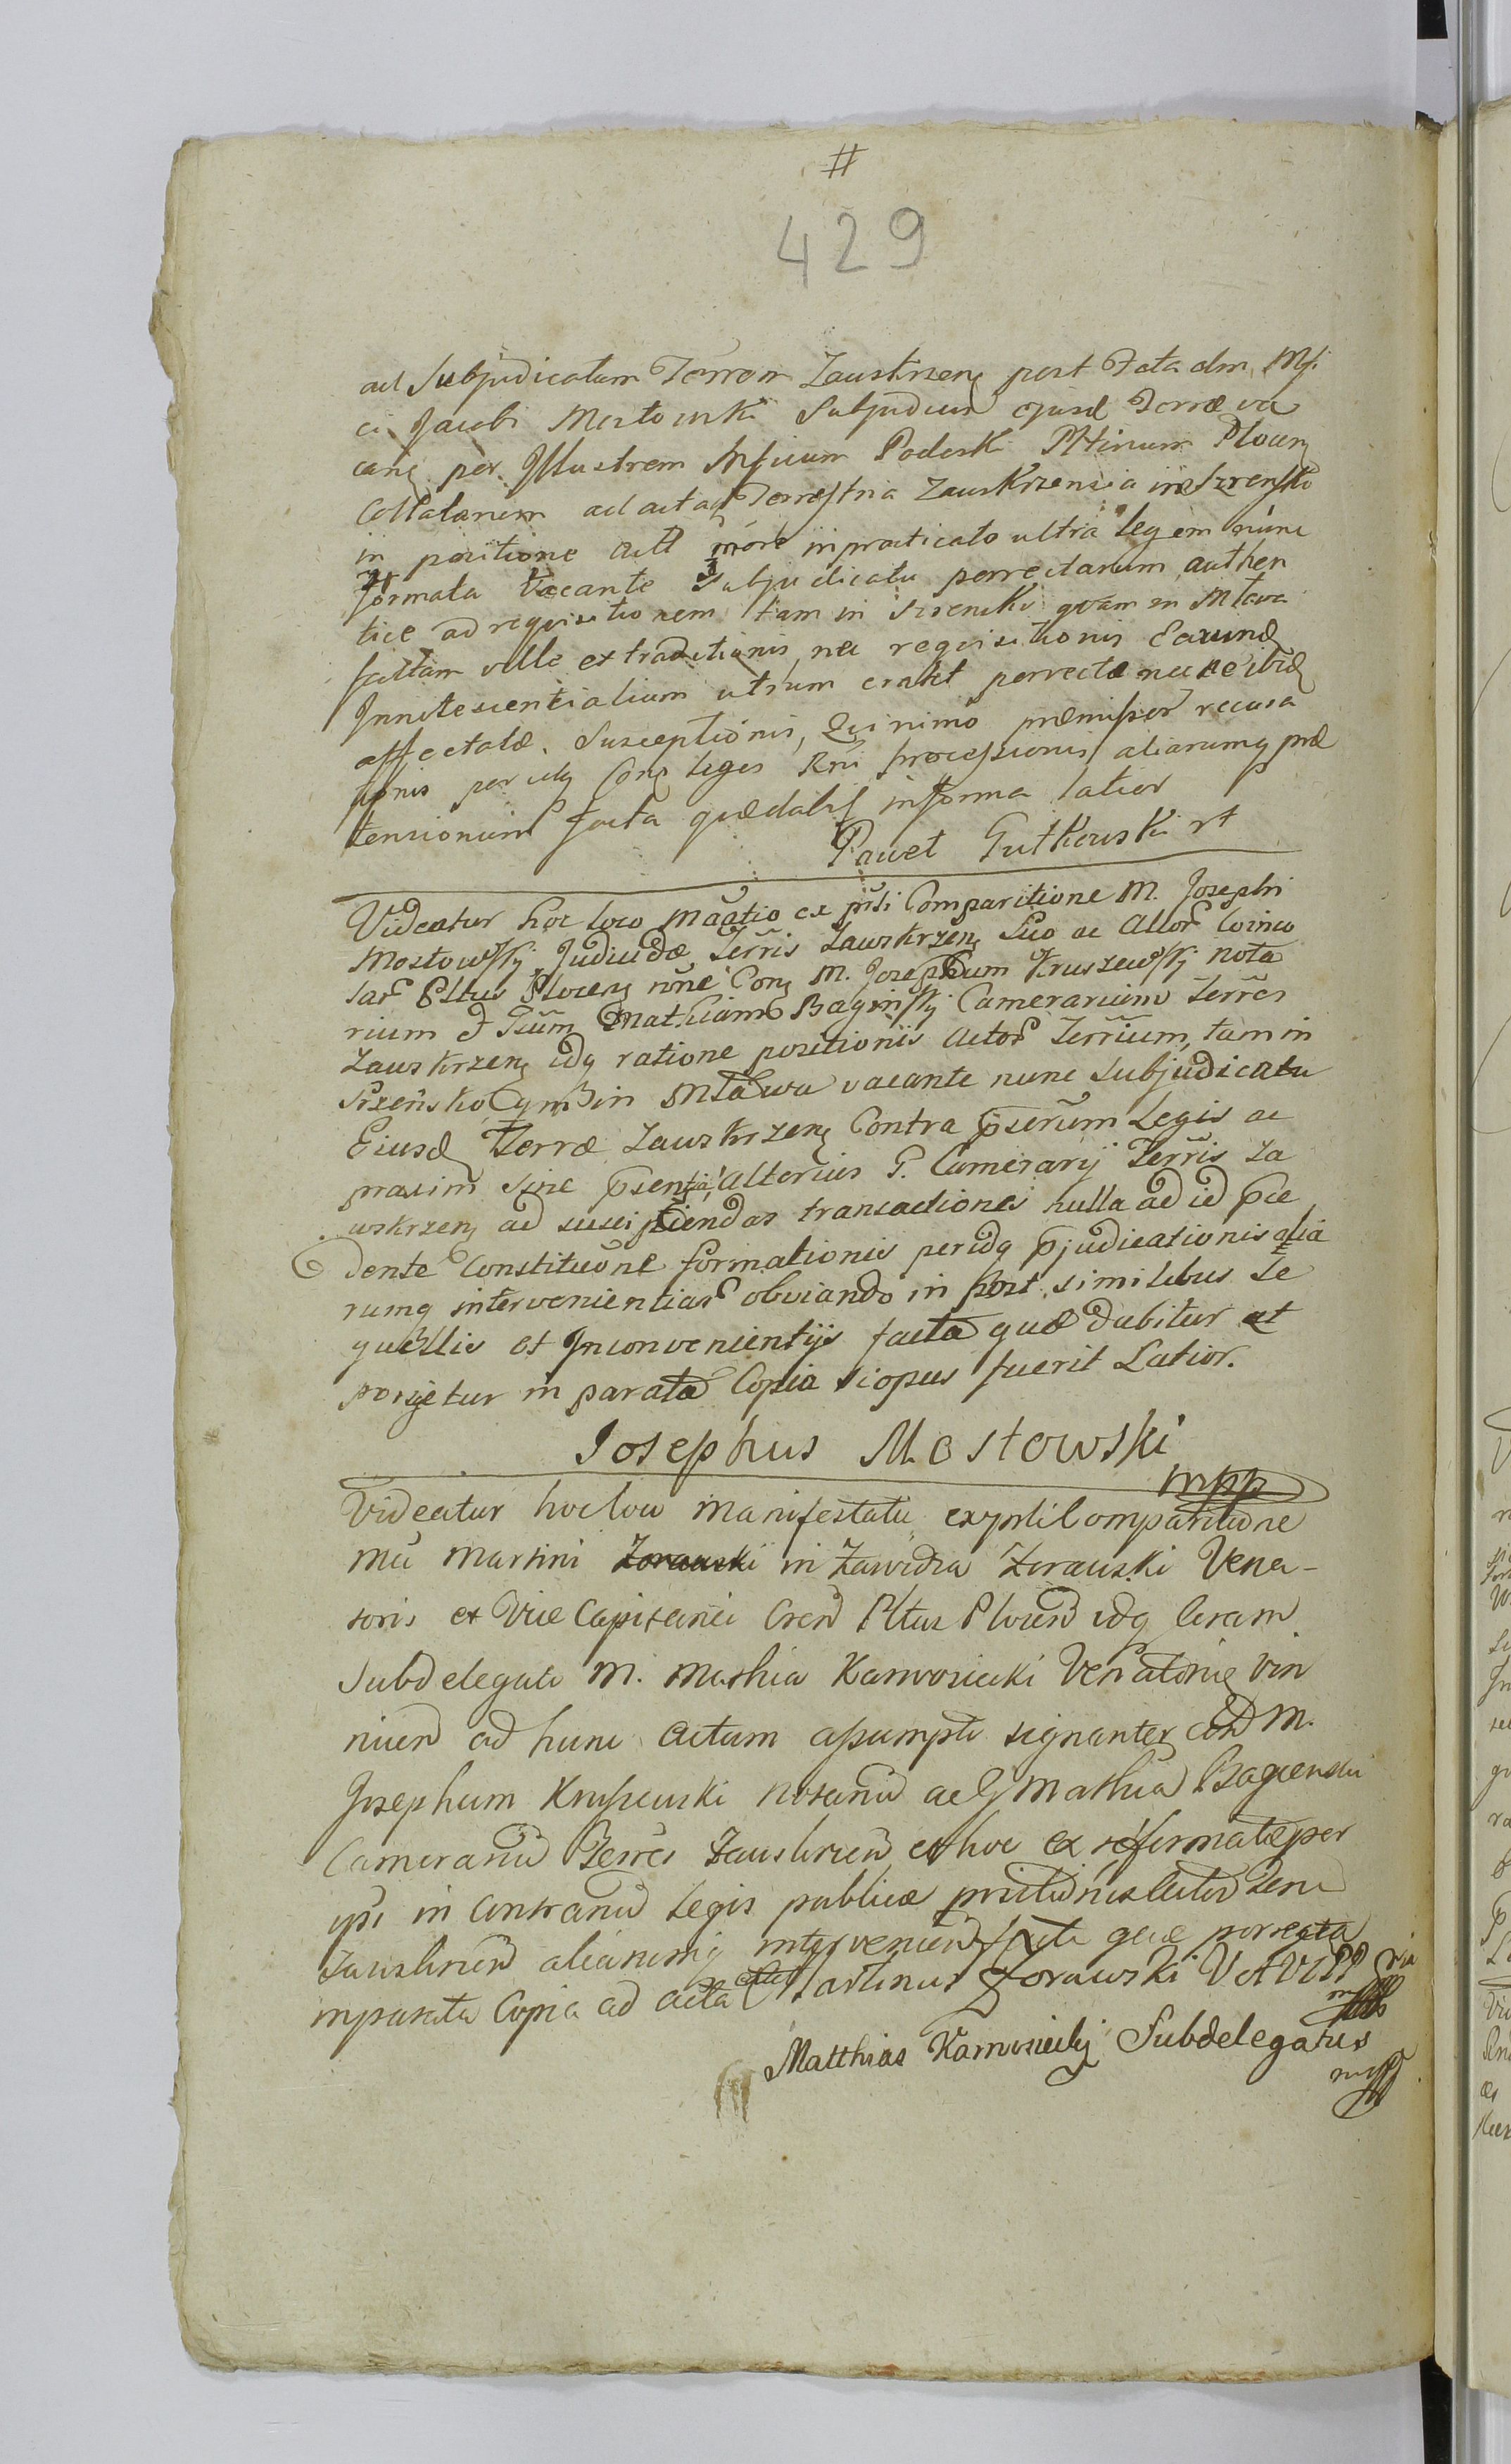 #
429
ad Subjudicatum Terrarum Zauskrzen post Fata olim Mfi
ci Jacobi Mostowski Subjudicis ejusd Terræ va
can per Illustrem Mficum Podoski Pltinum Plocen
Collatarum ad acta Terrestria Zauskrzensia in Szrensko
in positione Actt more inpracticato ultra legem nunc
formata Vacante Subjudicatu porrectarum authen
tice ad requisitionem tam in Szrensko quam in Mława
factam velle extraditionis, nec requisitionis Earund
Innotescentialium utrum erant porrectæ nec ne ibid
affectatæ. Susceptionis, Quinimo præmissor recusa
tionis per idq Con leges Rni processionis aliarumq præ
tensionum facta quæ dabit in forma latior
Paweł Gutkowski rt
Videatur hoc loco Maatio ex pnsi Comparitione M. Josephi
Mostowskÿ Judicidæ Terris Zawskrzen Suo ac Allor Coinco
lar Pltus Plocen nne Con M. Josephum Kruszewskÿ nota
rium & Gum Mathiam Baginskÿ Camerarium Terres
Zawskrzen idq ratione positionis Actor Terrium, tam in
Szrensko qm in Mława vacante nunc Subjudicatu
Eiusd Terræ Zawskrzen Contra pserum Legis ac
praxim sine psentia Alterius G. Camerarÿ Terris Za
wskrzen ad suscipiendas transactiones nulla ad id pce
dente Constitutione formationis per idq pjudicationis alia
rumq intervenientiar obviando in post similibus se
quellis et Inconvenientÿs facta quæ dabitur et
porrigetur in parata Copia si opus fuerit Latior.
Josephus Mostowski
mpp
Videatur hoc loco Manifestatio ex pnti Comparitione
Mci Martini Zorawski in Zawidza Zorawski Vena-
toris et Vice Capitanei Cren Pltus Plocen idq Coram
Subdelegato M. Mathia Karwosiecki Venatorie Vin
nicen ad hunc Actum assumpto signanter con M.
Josephum Kruszewski Notariu ac G Mathia Bagienski
Camerariu Terres Zauskrzen et hoc ex re formatæ per
ipsi in Contrariu Legis publicæ positionis Actor Terr
Zauskrzen aliarumq intervenien facta quæ porrecta
in parata Copia ad acta Martinus Zorawski V et VCPP
mpp
Matthias Karwosieckÿ Subdelegatus
mpp